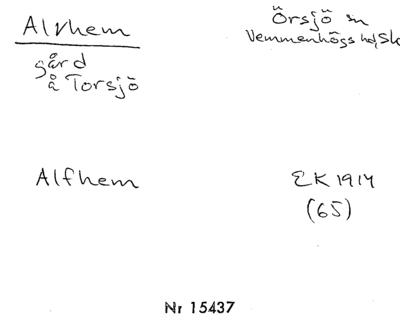 Alvhem
Örsjö sn
Vemmenhögs hd, Sk
gård
å Torsjö
Alfhem
EK 1914
(65)
Nr 15437